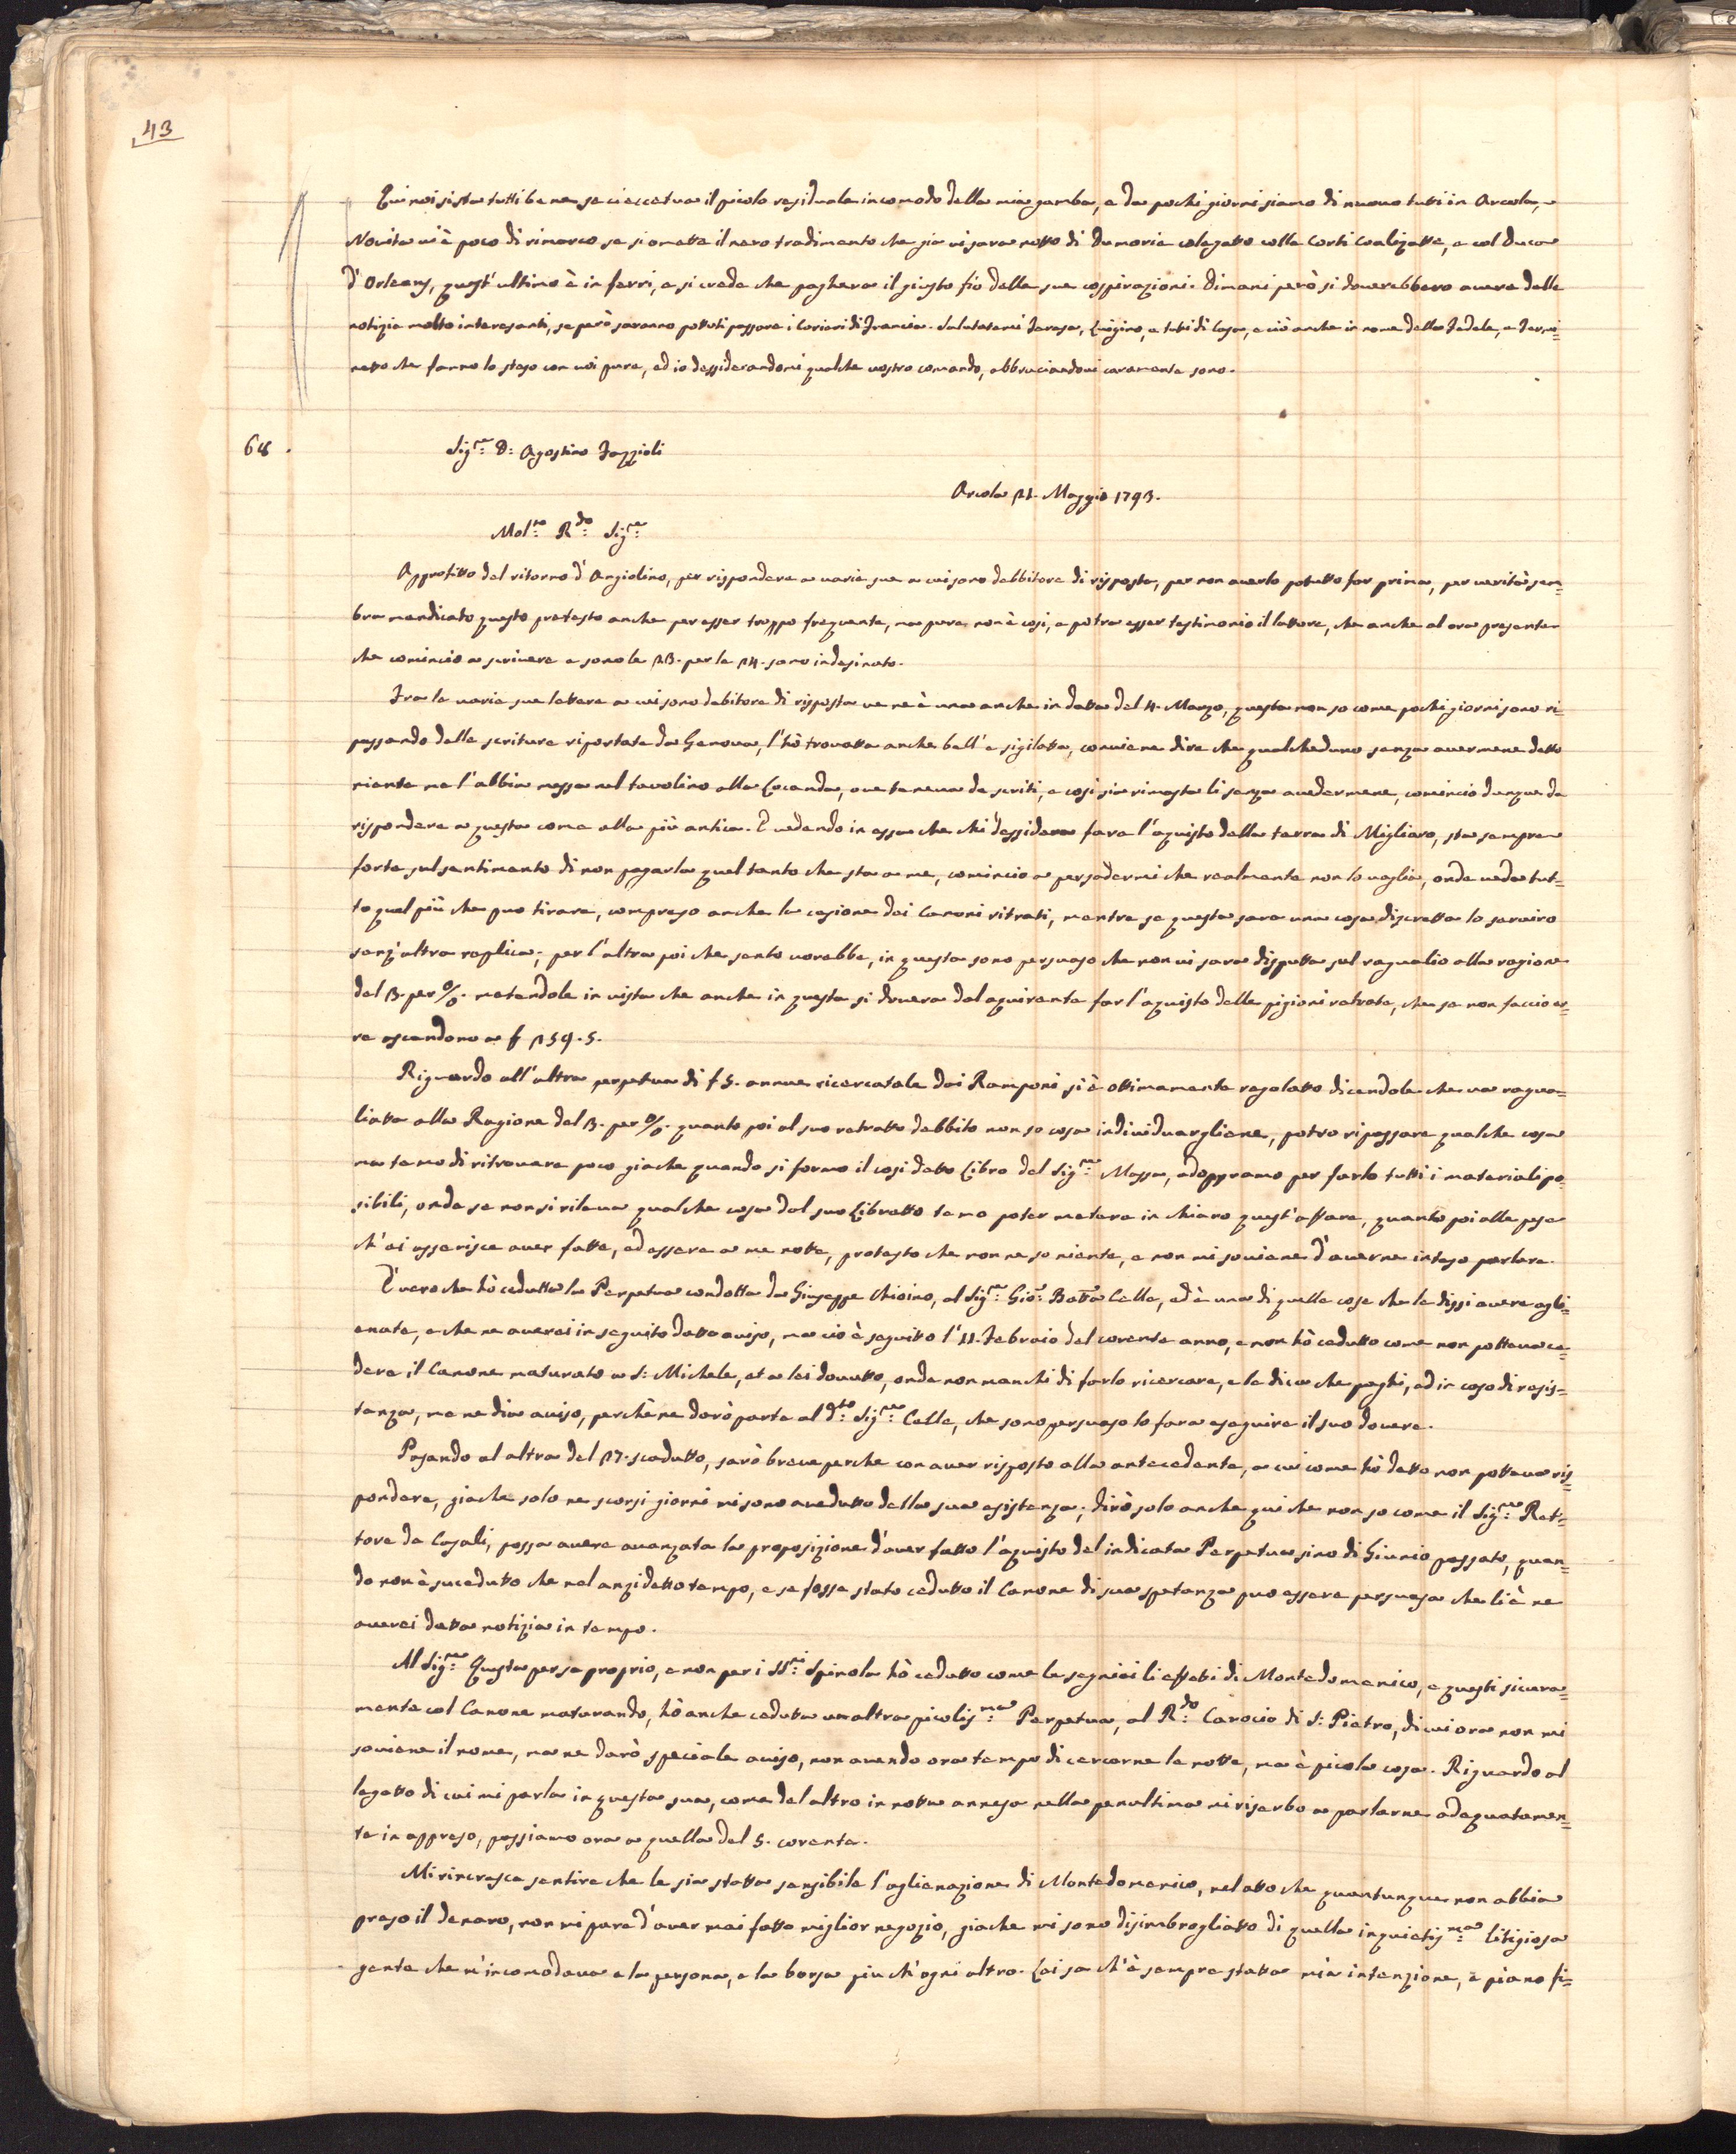 43
Quì noi si sta tutti bene se ci eccetua il picolo residuale incomodo della mia gamba, e da pochi giorni siamo di nuovo tutti in Arcola,
Novita vi è poco di rimarco se si omette il nero tradimento che gia vi sara notto di Dumorie colegatto colle Corti Coalizatte, e col Duca
d'Orleans, quest'ultimo è in ferri, e si crede che paghera il giusto fio delle sue cospirazioni. Dimani però si doverebbero avere delle
notizie molto interesanti, se però saranno pottuti passare i Corieri di Francia. Salutatemi Teresa, Luigino, e tutti di Casa, e ciò anche in nome della Fedele, e Ferni=
netto che fanno lo steso con voi pure, ed io dessiderandomi qualche vostro comando, abbraciandovi caramente sono.
68.
Sig:re D: Agostino Fazzioli
Arcola 21. Maggio 1793.
Mol:to R:do Sig:re
Approfitto del ritorno d'Angiolino, per rispondere a varie sue a cui sono debbitore di risposta, per non averlo potutto far prima, per verità sem=
bra mendicato questo pretesto anche per esser troppo frequente, ma pure non è cosi, e potra esser testimonio il lattore, che anche al ora presente
che comincio a scrivere e sono le 23. per le 24. sono indesinato.
Fra le varie sue lettere a cui sono debitore di risposta ve ne è una anche in datta del 4. Marzo, questa non so come pochi giorni sono ri=
passando delle scriture riportate da Genova, l'hò trovatta anche bell'e sigilatta, conviene dire che qualcheduno senza avermene detto
niente me l'abbia messa nel tavolino alla Locanda, ove teneva de scriti, e cosi sia rimasta li senza avedermene, comincio dunque da
rispondere a questa come alla più antica. E vedendo in essa che chi dessidera fare l'aquisto della terra di Migliaro, sta sempre
forte sul sentimento di non pagarla quel tanto che sta a me, comincio a persadermi che realmente non lo vaglia, onde veda tut=
to quel più che puo tirare, compreso anche la cesione dei Canoni ritrati, mentre se questa sara una cosa discretta lo serviro
senz'altra replica; per l'altra poi che sento vorebbe, in questa sono persuaso che non vi sara disputta sul raguaglio alla ragione
del 3. per %. metendole in vista che anche in questa si dovera dal aquirente far l'aquisto delle pigioni retrate, che se non faccio er=
re ascendono a £ 259.5.
Riguardo all'altra perpetua di £ 5. annue ricercatale dai Ramponi si è ottimamente regolatto dicendole che va ragua=
liatta alla Ragione del 3. per %. quanto poi al suo retratto debbito non so cosa individuargliene, potro ripassare qualche cosa
ma temo di ritrovare poco giache quando si formo il cosi detto Libro del Sig:re Massa, adoppramo per farlo tutti i materiali po=
sibili, onde se non si rileva qualche cosa dal suo Libretto temo poter metere in chiaro quest'affare, quanto poi alle pese
ch'ei asserisce aver fatte, ed essere a me notte, protesto che non ne so niente, e non mi soviene d'averne inteso parlare.
E vero che hò cedutta la Perpetua condotta da Giuseppe Chioino, al Sig:re Gio: Batta Celle, ed è una di quelle cose che le dissi avere agli=
enate, e che ne averei in seguito datto aviso, ma ciò è seguito l'11. Febraio del corente anno, e non hò cedutto come non potteva ce=
dere il Canone maturato a S: Michele, et a lei dovutto, onde non manchi di farlo ricercare, e le dica che paghi, ed in caso di resis=
tenza, me ne dia aviso, perchè ne darò parte al d:to Sig:re Celle, che sono persuaso lo fara eseguire il suo dovere.
Pasando al altra del 27. scadutto, sarò breve perche con aver risposto alla antecedente, a cui come hò detto non potteva ris=
pondere, giache solo ne scorsi giorni mi sono avedutto della sua esistenza; dirò solo anche qui che non so come il Sig:re Ret=
tore da Casali, possa avere avanzata la proposizione d'aver fatto l'aquisto del indicata Perpetua sino di Giunio passato, quan=
do non è sucedutto che nel anzidetto tempo, e se fosse stato cedutto il Canone di sua spetanza puo essere persuasa che li è ne
averei datta notizia in tempo.
Al Sig:re Questa per se proprio, e non per i SS:ri Spinola hò cedutto come le segniai li effetti di Montedomenico, e questi sicura=
mente col Canone maturando, hò anche cedutta un altra picolis:ma Perpetua, al R:do Carocio di S: Pietro, di cui ora non mi
soviene il nome, ma ne darò speciale aviso, non avendo ora tempo di cercarne la notta, ma è picola cosa. Riguardo al
legatto di cui mi parla in questa sua, come del altro in notta annesa nella penultima mi riserbo a parlarne adequatamen=
te in appreso, passiamo ora a quella del 5. corente.
Mi rincresce sentire che le sia statta sensibile l'aglienazione di Montedomenico, nel atto che quantunque non abbia
preso il denaro, non mi pare d'aver mai fatto miglior negozio, giache mi sono disimbrogliatto di quella inquietis:ma Litigiosa
gente che m'incomodava e la persona, e la borsa piu ch'ogni altro. Lei sa ch'è sempre statta mia intenzione, e piano fi=